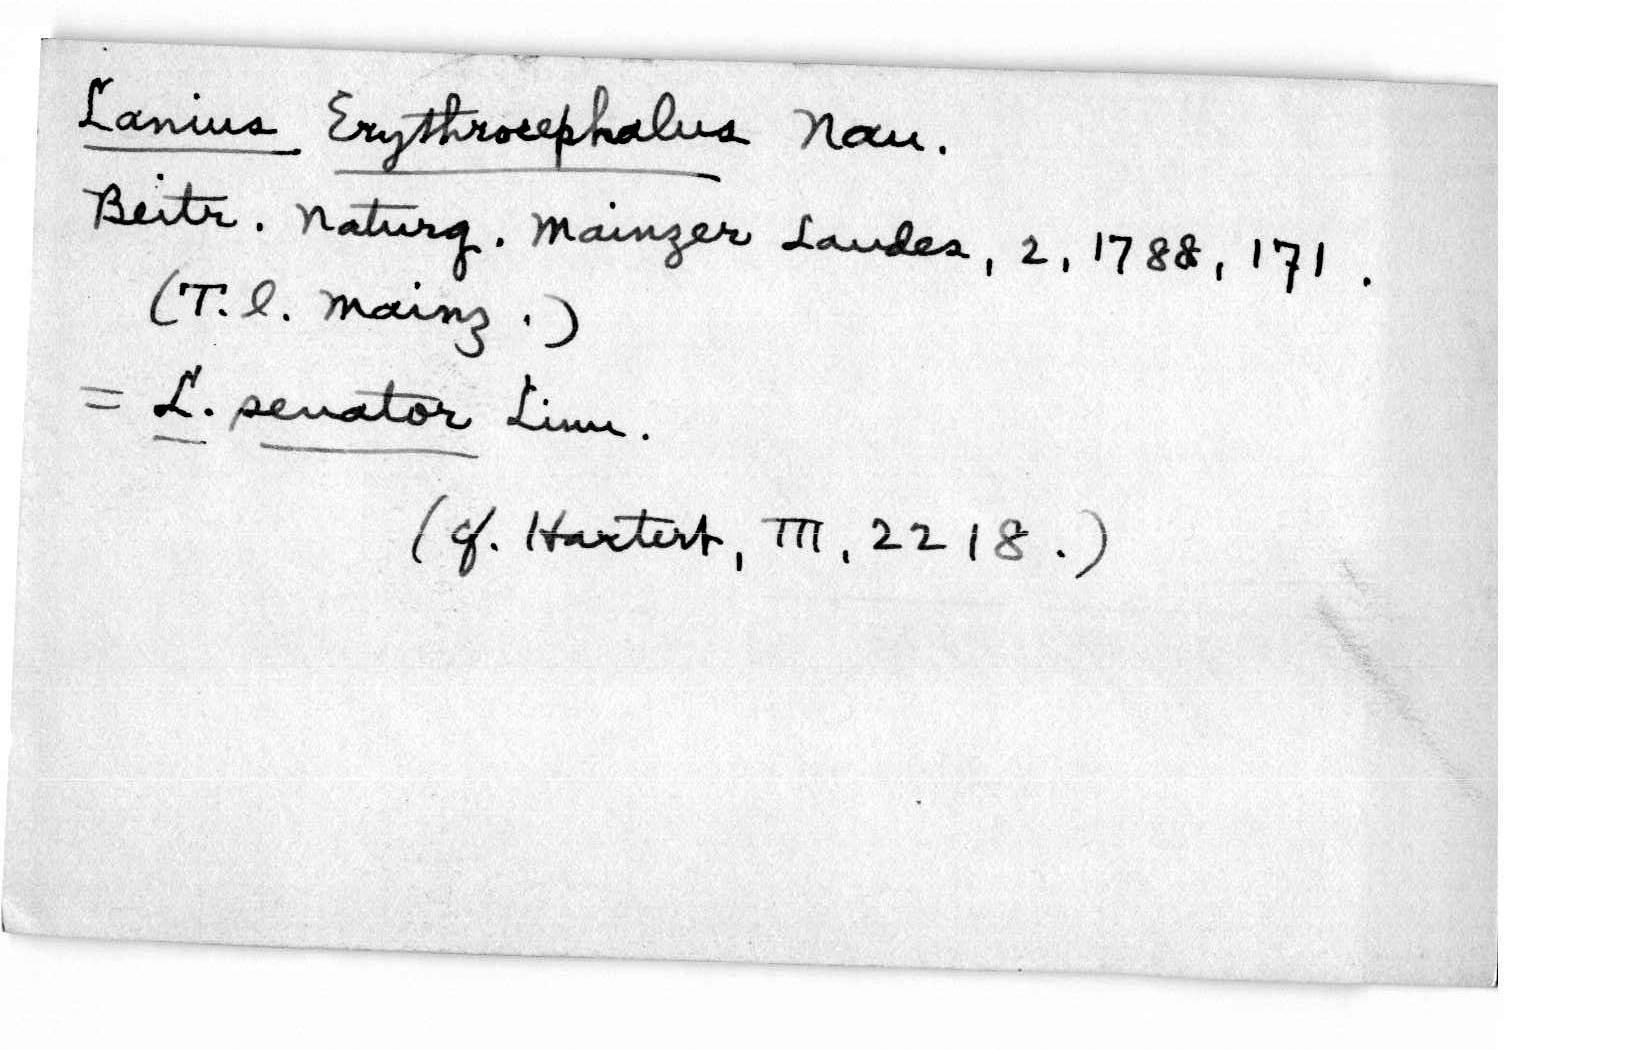 Lanius Erythrocephalus Nau.
Beitr. Naturg. Mainzer Landes, 2, 1788, 171.
(T. l. Mainz.)
= L. senator Linn.
(cf. Hartert, III, 2218.)